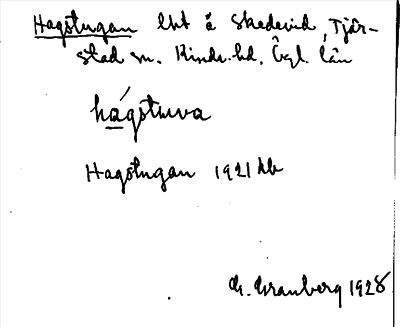 Hagstugan lht å Skedevid, Tjär-
stad sn. Kinda hd. Ögl. län
hágstuva
Hagstugan 1921 kb
G. Granberg 1928